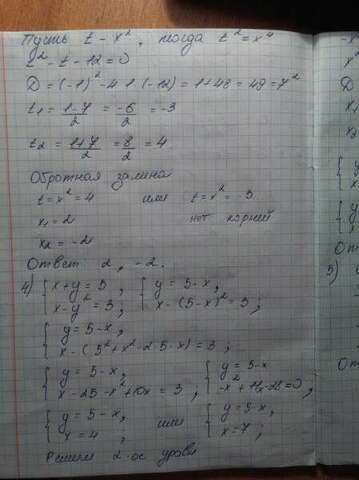 Пусть t - x², тогда t² = x⁴
t² - t - 12 = 0
D = (-1)² - 4·1·(-12) = 1+48 = 49 = 7²
t₁ = (1-7)/2 = -6/2 = -3
t₂ = (1+7)/2 = 8/2 = 4
Обратная замена
t = x² = 4 или t = x² = -3
x₁ = 2 нет корней
x₂ = -2
Ответ 2, -2.
4) { x+y = 5, x-y² = 3; { y = 5-x, x-(5-x)² = 3;
{ y = 5-x, x-(5²+x²-2·5·x) = 3;
{ y = 5-x, x-25-x²+10x = 3; { y = 5-x, -x²+11x-28 = 0;
{ y = 5-x, x = 4; или { y = 5-x, x = 7;
Решим 2-ое уравн
5)